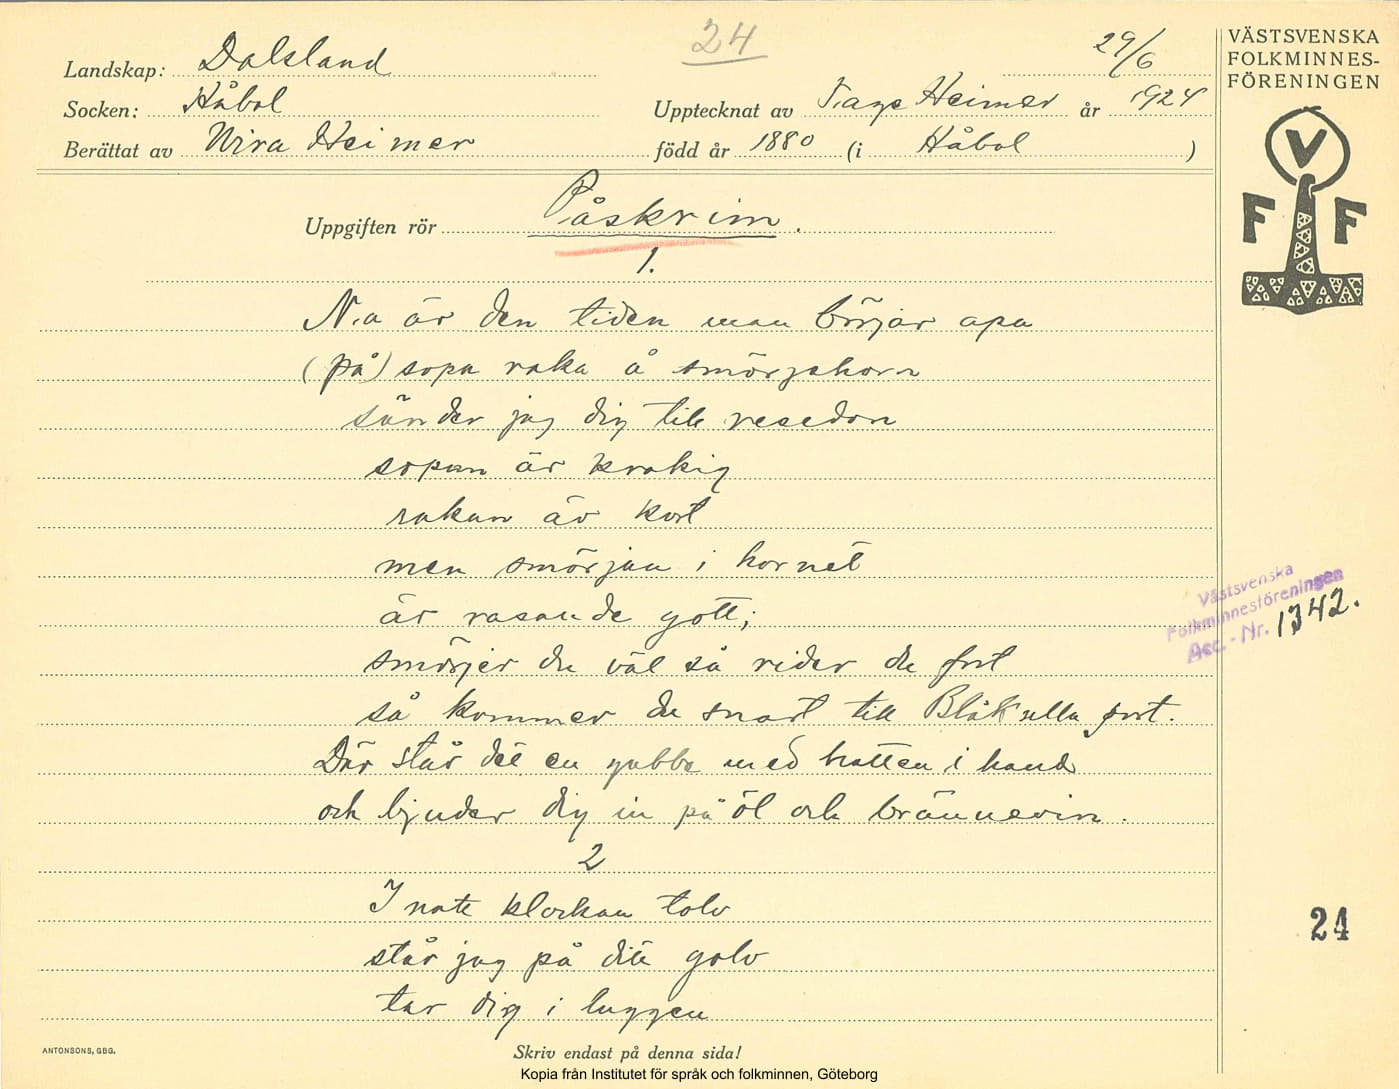 24
29/6
VÄSTSVENSKA
FOLKMINNES-
FÖRENINGEN
Landskap: Dalsland
Socken: Håbol
Upptecknat av Tage Heimer år 1924
Berättat av Wira Heimer född år 1880 (i Håbol)
V
F F
Uppgiften rör Påskrim.
1.
N.a är den tiden man börjar apa
(på) sopa raka å smörjehorn
sänder jag dig till resedon
sopan är krokig
rakan är kort
men smörjan i hornet
är rasande gott;
smörjer du väl så rider du fort
så kommer du snart till Blåkulla port.
Där står det en gubbe med hatten i hand
och bjuder dig in på öl och brännevin.
2
I natt klockan tolv
står jag på ditt golv
tar dig i luggen
Västsvenska
Folkminnesföreningen
Acc. - Nr. 1342.
24
ANTONSONS, GBG.
Skriv endast på denna sida!
Kopia från Institutet för språk och folkminnen, Göteborg